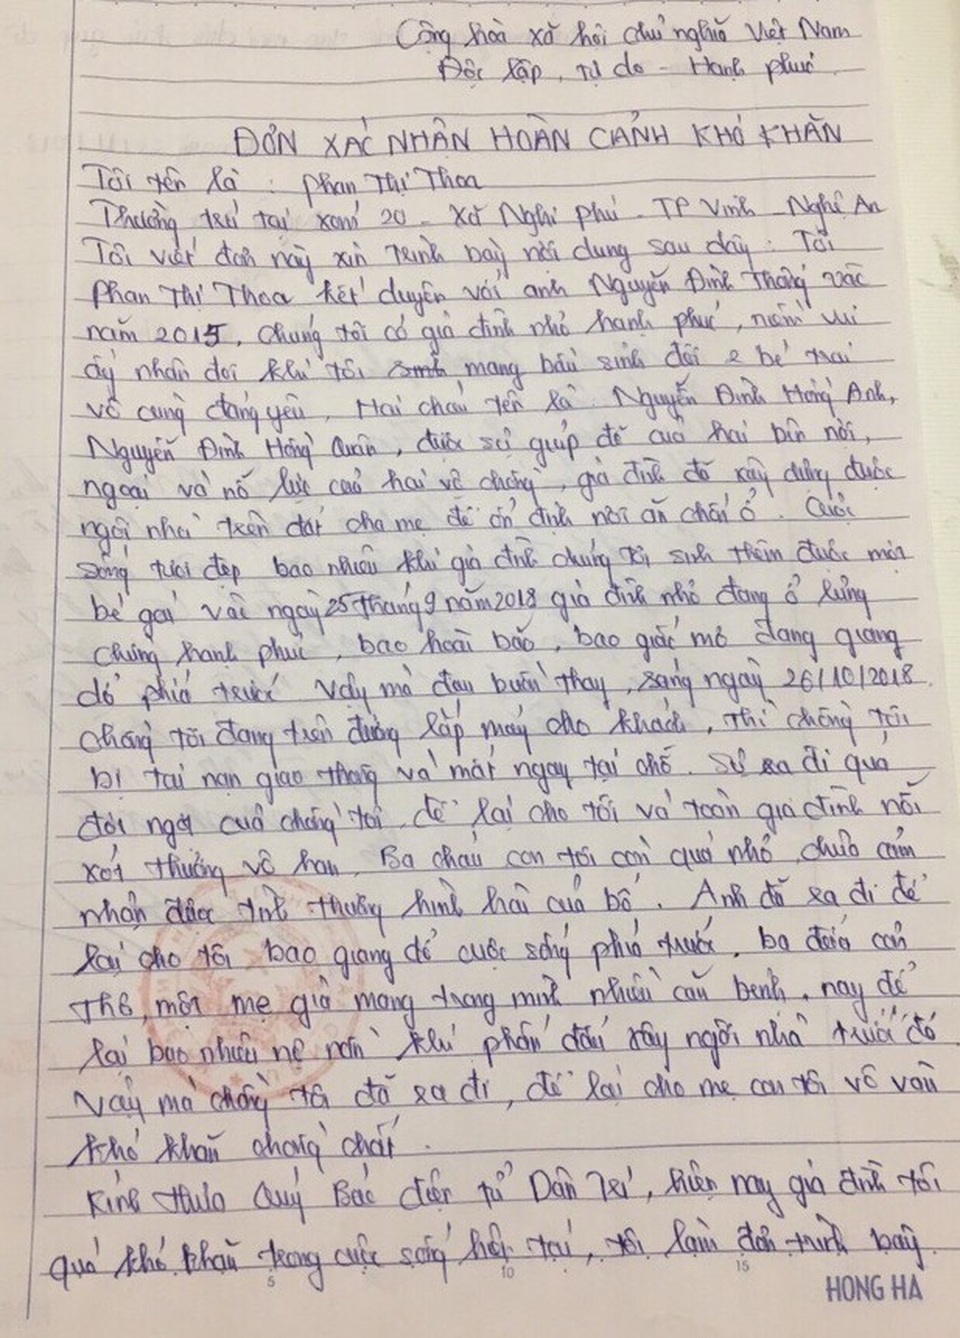 Cộng hòa xã hội chủ nghĩa Việt Nam
Độc lập, Tự do - Hạnh phúc
ĐƠN XÁC NHẬN HOÀN CẢNH KHÓ KHĂN
Tôi tên là : Phan Thị Thoa
Thường trú tại xóm 20 - xã Nghi phú - TP Vinh - Nghệ An
Tôi viết đơn này xin trình bày nội dung sau đây : Tôi
Phan Thị Thoa kết duyên với anh Nguyễn Đình Thắng vào
năm 2015, chúng tôi có gia đình nhỏ hạnh phúc, niềm vui
ấy nhân đôi khi tôi mang bầu sinh đôi 2 bé trai
vô cùng đáng yêu, Hai cháu tên là : Nguyễn Đình Hồng Anh,
Nguyễn Đình Hồng Quân, được sự giúp đỡ của hai bên nội,
ngoại và nỗ lực của hai vợ chồng, gia đình đã xây dựng được
ngôi nhà trên đất cha mẹ để ổn định nơi ăn chốn ở. Cuộc
sống tươi đẹp bao nhiêu khi gia đình chúng tôi sinh thêm được một
bé gái vào ngày 25 tháng 9 năm 2018 gia đình nhỏ đang ở lưng
chừng hạnh phúc, bao hoài bão, bao giấc mơ đang giang
dở phía trước vậy mà đau buồn thay, sáng ngày 26/10/2018
chồng tôi đang trên đường lắp máy cho khách, thì chồng tôi
bị tai nạn giao thông và mất ngay tại chỗ. Sự ra đi quá
đột ngột của chồng tôi, để lại cho tôi và toàn gia đình nỗi
xót thương vô hạn. Ba cháu con tôi còn quá nhỏ chưa cảm
nhận được tình thương hình hài của bố. Anh đã ra đi để
lại cho tôi bao giang dở cuộc sống phía trước, ba đứa con
thơ, một mẹ già mang trong mình nhiều căn bệnh, nay để
lại bao nhiêu nợ nần khi phấn đấu xây ngôi nhà trước đó
vậy mà chồng tôi đã ra đi, để lại cho mẹ con tôi vô vàn
khó khăn chồng chất.
Kính thưa Quý Báo điện tử Dân trí, hiện nay gia đình tôi
quá khó khăn trong cuộc sống hiện tại, tôi làm đơn trình bày
5 10 15
HONG HA